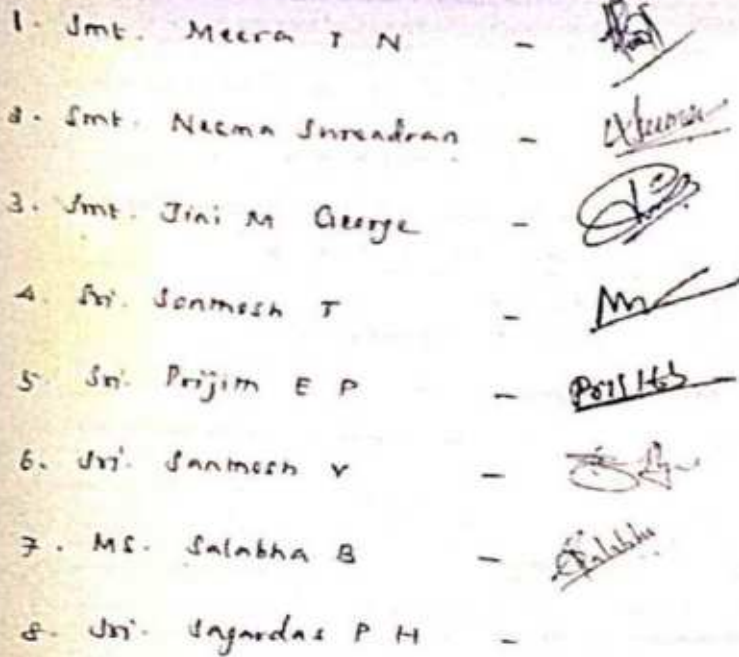 1. Smt. Meera T N -
2. Smt. Neema Surendran -
3. Smt. Jini M George -
4. Sri. Sanmosh T -
5. Sri. Prijim E P -
6. Sri. Sanmosh V -
7. Ms. Salabha B - Salabha
8. Sri. Sagardas P H -